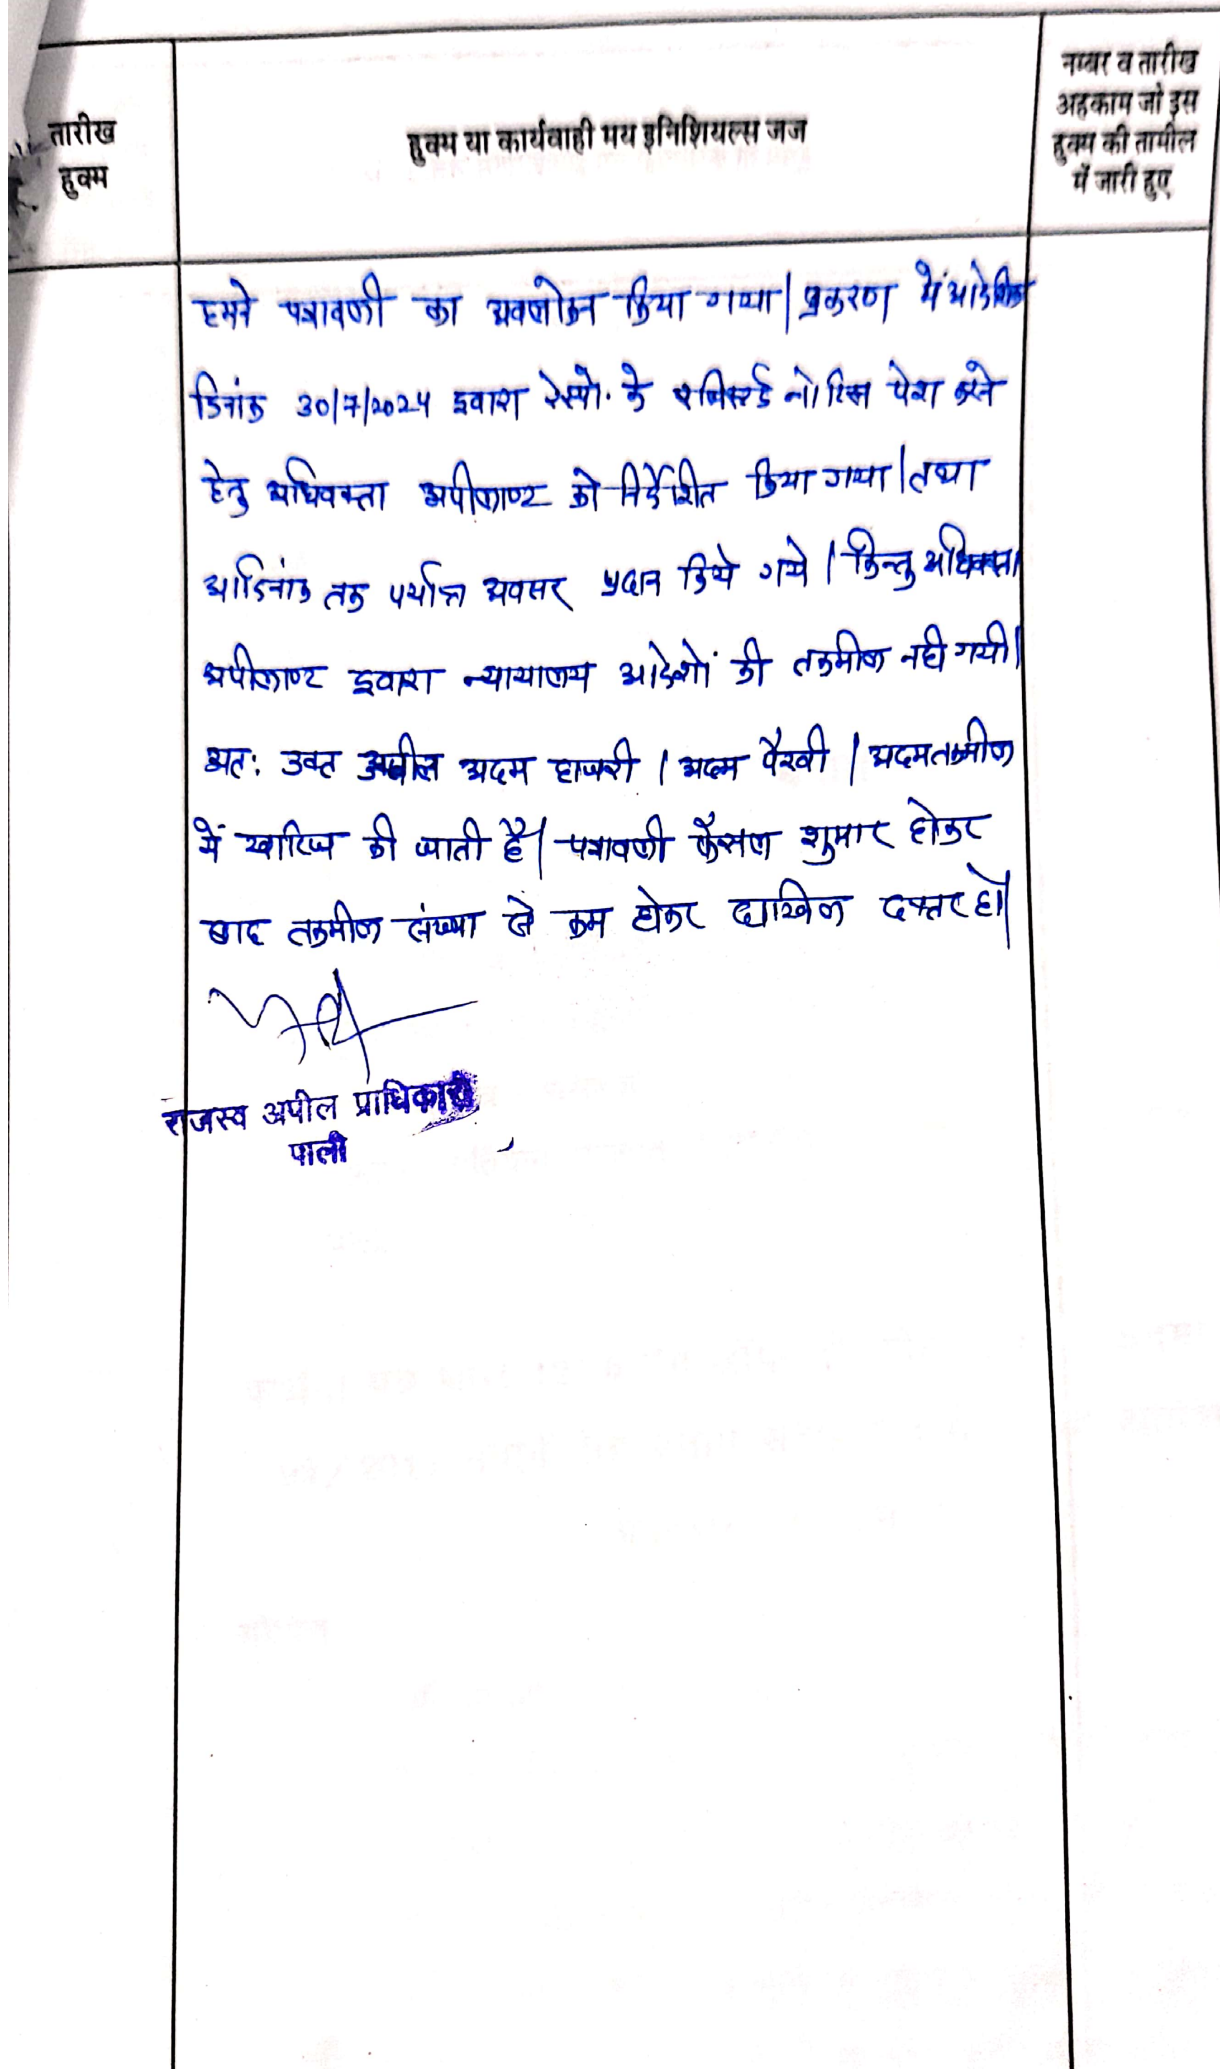 तारीख
हुक्म
हुक्म या कार्यवाही मय इनिशियल्स जज
नम्बर व तारीख
अहकाम जो इस
हुक्म की तामील
में जारी हुए
हमने पत्रावली का अवलोकन किया गया| प्रकरण में
दिनांक 30/7/2024 द्वारा रेस्पो. के रजिस्टर्ड नोटिस पेश करने
हेतु अधिवक्ता अपीलाण्ट को निर्देशित किया गया| तथा
आदिनांक तक पर्याप्त अवसर प्रदान किये गये | किन्तु अधिवक्ता
अपीलाण्ट द्वारा न्यायालय आदेशों की तकमील नही गयी|
अतः उक्त अपील अदम हाजरी | अदम पैरवी | अदमतकमील
में खारिज की जाती है| पत्रावली फैसल शुमार होकर
बाद तकमील संख्या से कम होकर दाखिल दफ्तर हो|
राजस्व अपील प्राधिकारी
पाली